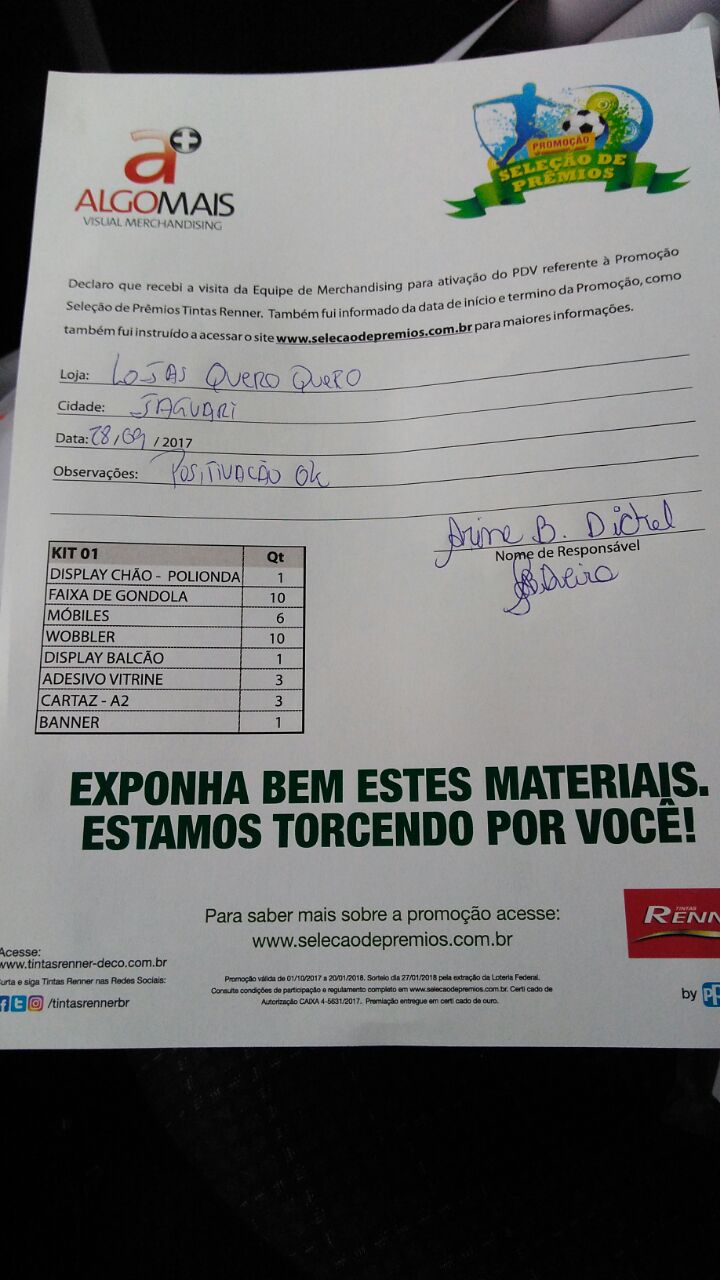 a+
ALGOMAIS
VISUAL MERCHANDISING
PROMOÇÃO
SELEÇÃO DE
PRÊMIOS
Declaro que recebi a visita da Equipe de Merchandising para ativação do PDV referente à Promoção
Seleção de Prêmios Tintas Renner. Também fui informado da data de início e termino da Promoção, como
também fui instruído a acessar o site www.selecaodepremios.com.br para maiores informações.
Loja: LOJAS QUERO QUERO
Cidade: JAGUARI
Data: 28/09 / 2017
Observações: POSITIVAÇÃO OK
B. Dickel
Nome de Responsável
KIT 01 Qt
DISPLAY CHÃO - POLIONDA 1
FAIXA DE GONDOLA 10
MÓBILES 6
WOBBLER 10
DISPLAY BALCÃO 1
ADESIVO VITRINE 3
CARTAZ - A2 3
BANNER 1
EXPONHA BEM ESTES MATERIAIS.
ESTAMOS TORCENDO POR VOCÊ!
Para saber mais sobre a promoção acesse:
www.selecaodepremios.com.br
TINTAS
RENN
Acesse:
www.tintasrenner-deco.com.br
urta e siga Tintas Renner nas Redes Sociais:
/tintasrennerbr
Promoção válida de 01/10/2017 a 20/01/2018. Sorteio dia 27/01/2018 pela extração da Loteria Federal.
Consulte condições de participação e regulamento completo em www.selecaodepremios.com.br. Certi cado de
Autorização CAIXA 4-5631/2017. Premiação entregue em certi cado de ouro.
by PP